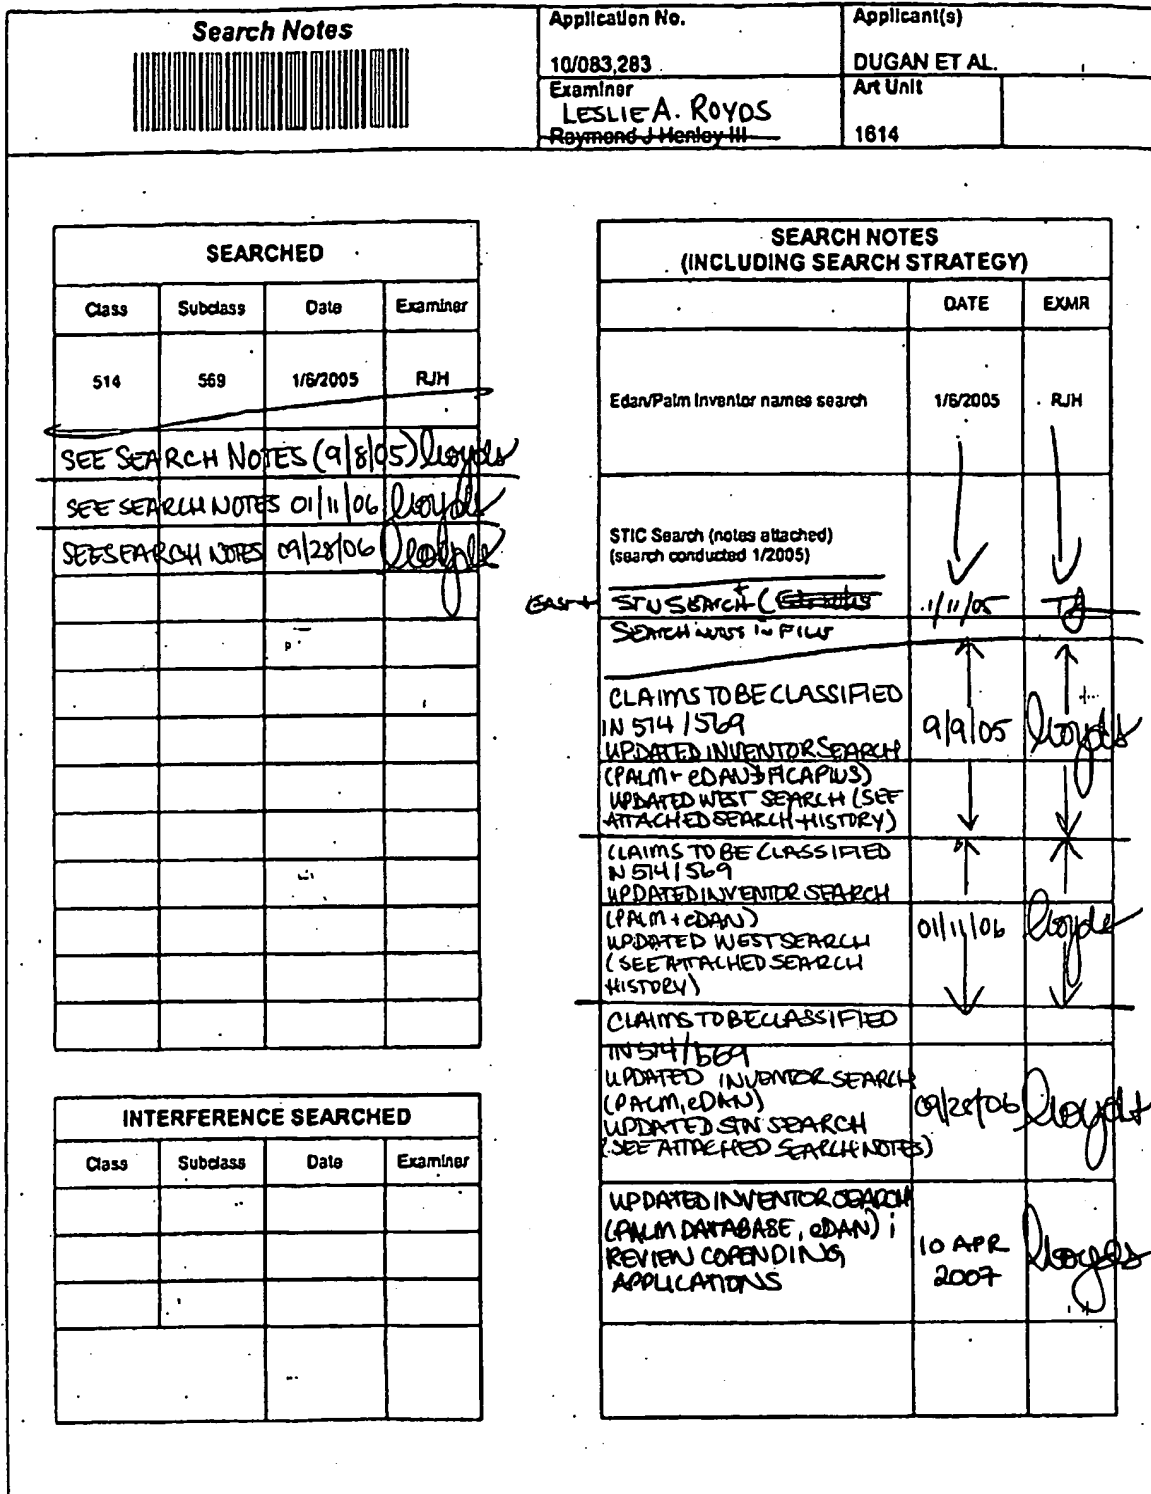 Search Notes
Application No.
Applicant(s)
10/083,283
DUGAN ET AL.
Examiner
Art Unit
LESLIE A. ROYDS
Raymond J Henley III
1614
SEARCHED
Class Subclass Date Examiner
514 569 1/6/2005 RJH
SEE SEARCH NOTES (9/8/05) lroyds
SEE SEARCH NOTES 01/11/06 lroyds
SEE SEARCH NOTES 09/28/06
INTERFERENCE SEARCHED
Class Subclass Date Examiner
SEARCH NOTES
(INCLUDING SEARCH STRATEGY)
DATE EXMR
Edan/Palm Inventor names search 1/6/2005 RJH
STIC Search (notes attached)
(search conducted 1/2005)
EAST + STN SEARCH 1/11/05
SEARCH NOTES IN FILE
CLAIMS TO BE CLASSIFIED
IN 514/569
UPDATED INVENTOR SEARCH 9/9/05 lroyds
(PALM + eDAN
UPDATED WEST SEARCH (SEE
ATTACHED SEARCH HISTORY)
CLAIMS TO BE CLASSIFIED
IN 514/569
UPDATED INVENTOR SEARCH
(PALM + eDAN) 01/11/06 lroyds
UPDATED WEST SEARCH
(SEE ATTACHED SEARCH
HISTORY)
CLAIMS TO BE CLASSIFIED
IN 514/569
UPDATED INVENTOR SEARCH
(PALM, eDAN) 09/28/06 lroyds
UPDATED STN SEARCH
(SEE ATTACHED SEARCH NOTES)
UPDATED INVENTOR SEARCH
(PALM DATABASE, eDAN);
REVIEW COPENDING 10 APR lroyds
APPLICATIONS 2007